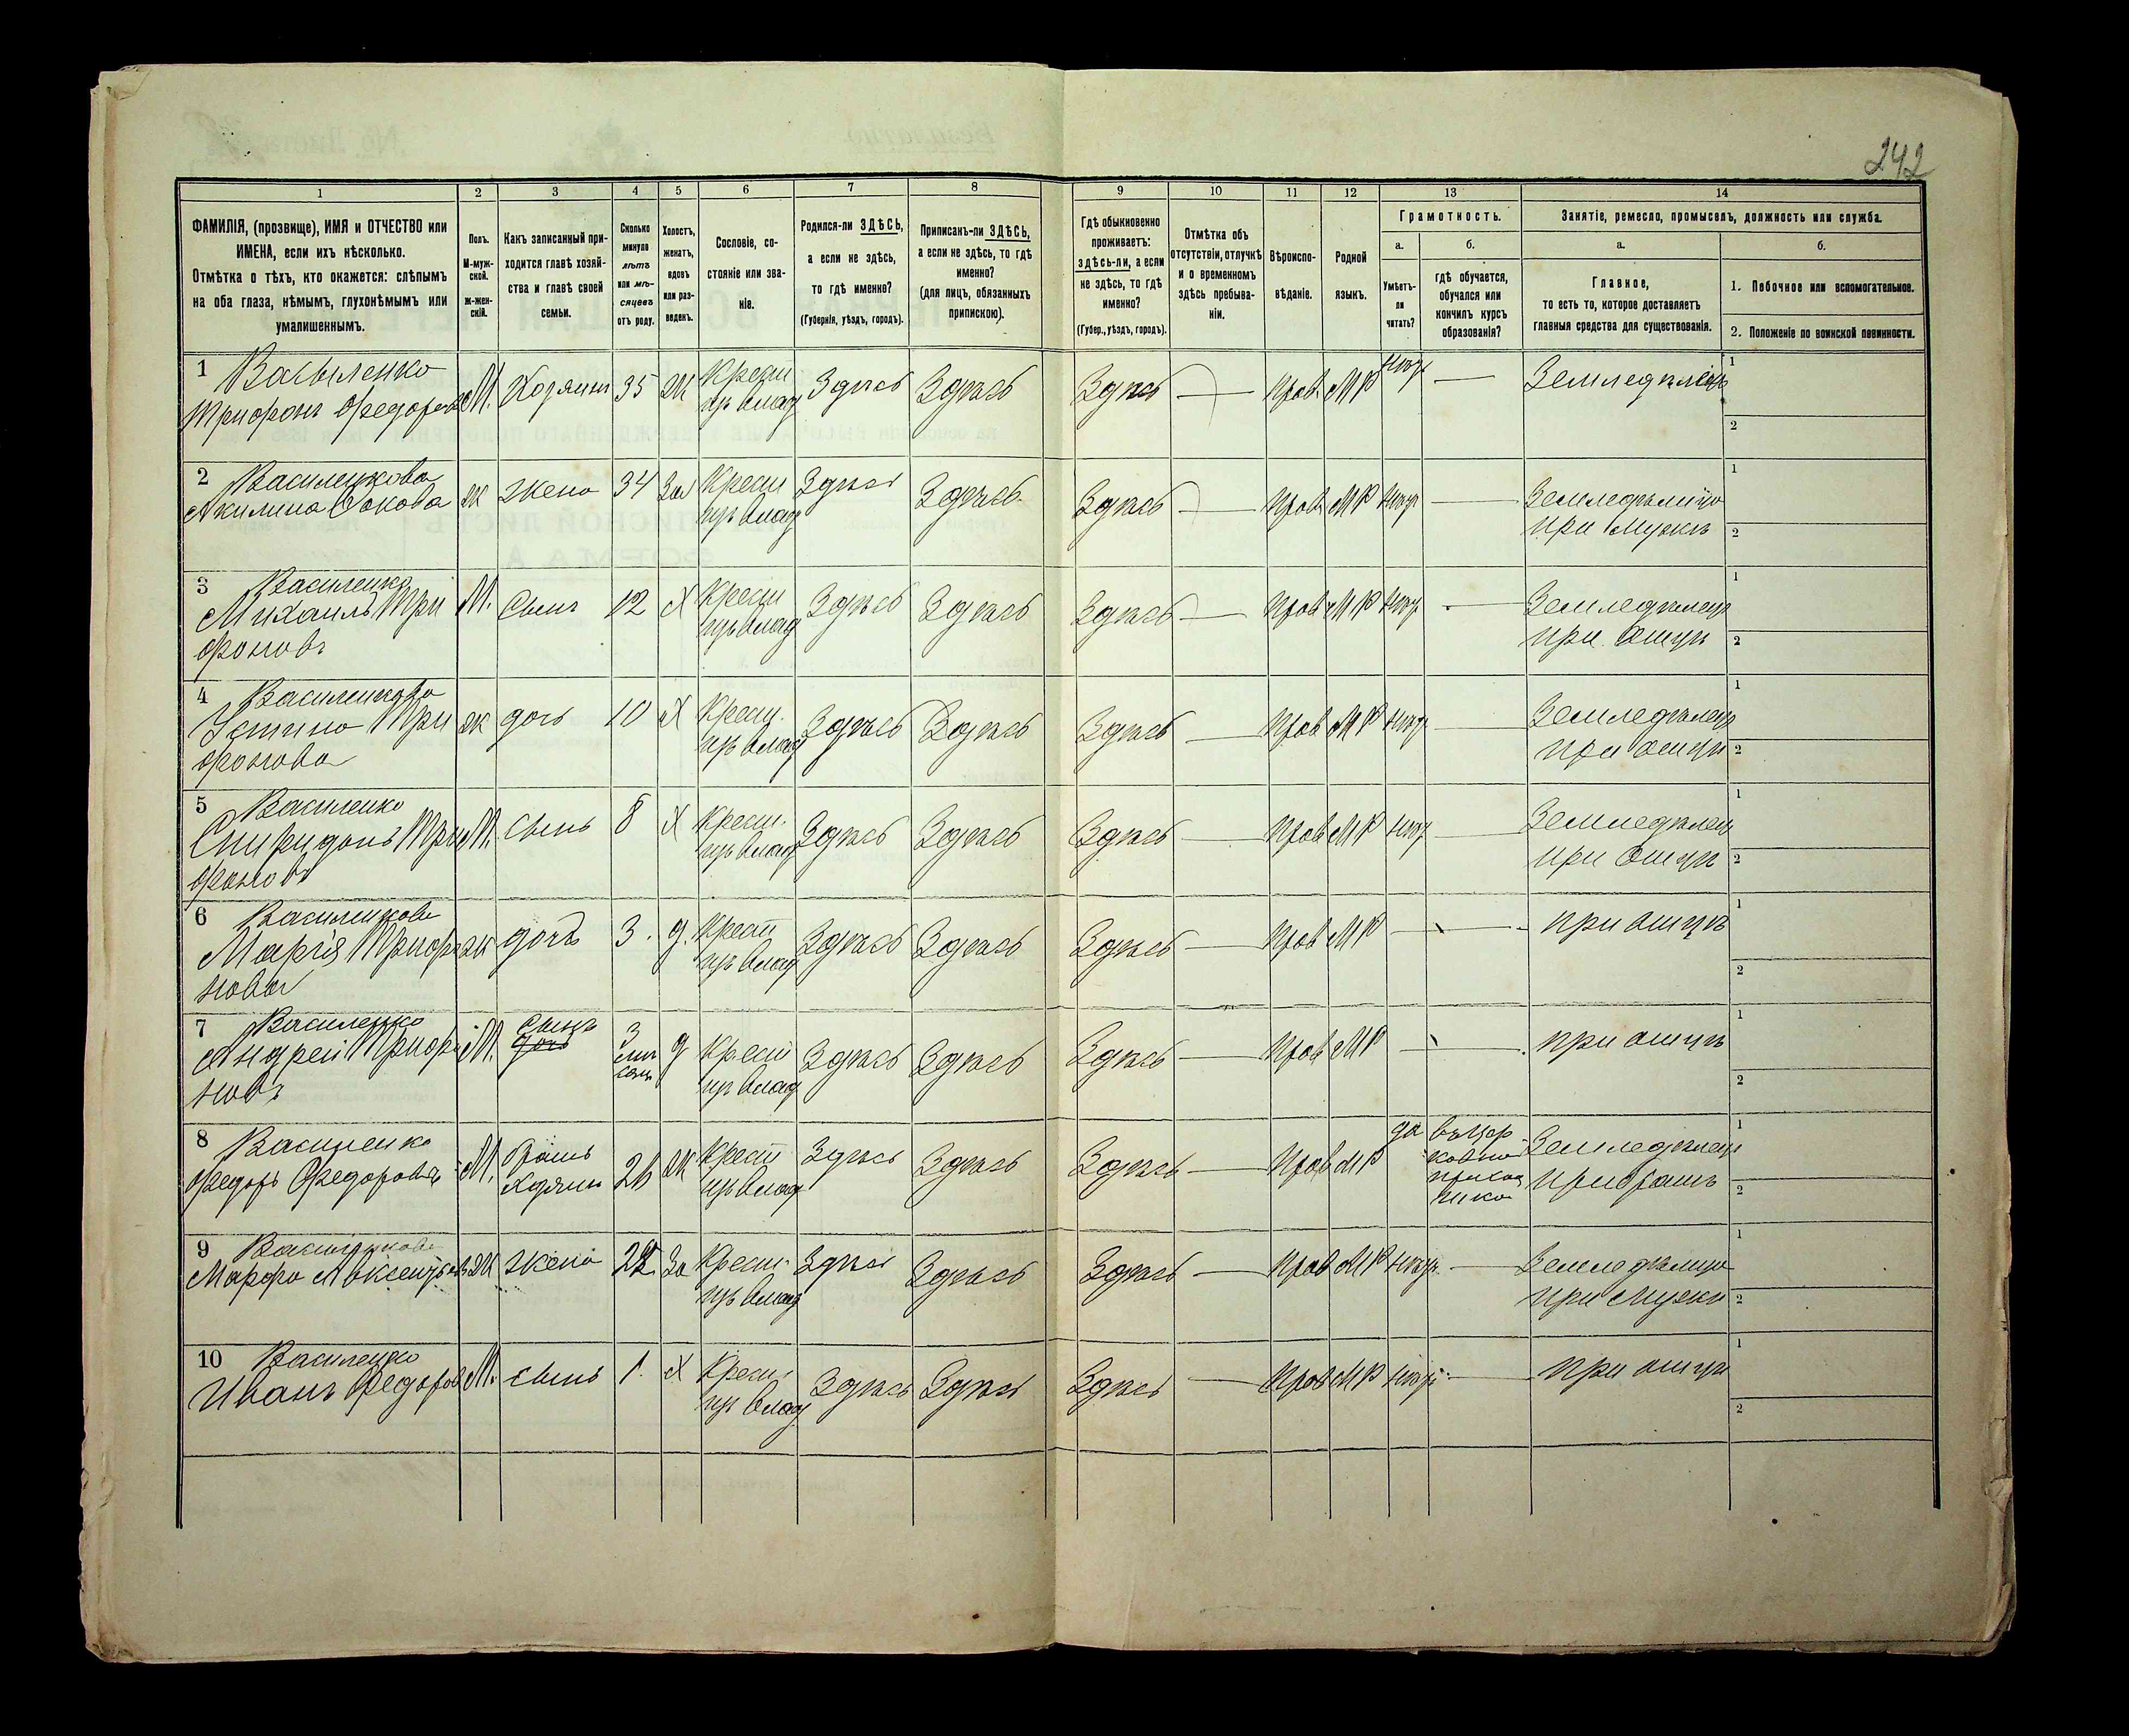 242
1 2 3 4 5 6 7 8 9 10 11 12 13 14
ФАМИЛІЯ, (прозвище), ИМЯ и ОТЧЕСТВО или
ИМЕНА, если ихъ нѣсколько.
Отмѣтка о тѣхъ, кто окажется: слѣпымъ
на оба глаза, нѣмымъ, глухонѣмымъ или
умалишеннымъ.
Полъ.
М-муж-
ской.
Ж-жен-
скій.
Какъ записанный при-
ходится главѣ хозяй-
ства и главѣ своей
семьи.
Сколько
минуло
лѣтъ
или мѣ-
сяцевъ
отъ роду.
Холостъ,
женатъ,
вдовъ
или раз-
веденъ.
Сословіе, со-
стояніе или зва-
ніе.
Родился-ли ЗДѢСЬ,
а если не здѣсь,
то гдѣ именно?
(Губернія, уѣздъ, городъ).
Приписанъ-ли ЗДѢСЬ,
а если не здѣсь, то гдѣ
именно?
(для лицъ, обязанныхъ
припискою).
Гдѣ обыкновенно
проживаетъ:
здѣсь-ли, а если
не здѣсь, то гдѣ
именно?
(Губер., уѣздъ, городъ).
Отмѣтка объ
отсутствіи, отлучкѣ
и о временномъ
здѣсь пребыва-
ніи.
Вѣроиспо-
вѣданіе.
Родной
языкъ.
Грамотность.
а. б.
Умѣетъ-
ли
читать?
гдѣ обучается,
обучался или
кончилъ курсъ
образованія?
Занятіе, ремесло, промыселъ, должность или служба.
а. б.
Главное,
то есть то, которое доставляетъ
главныя средства для существованія.
1. Побочное или вспомогательное.
2. Положеніе по воинской повинности.
1 Васыленко
Трифонъ Федоровъ М. Хозяинъ 35 Ж Крест Здѣсь Здѣсь Здѣсь — Прав. МР нѣтъ — Земледѣлецъ 1
изъ влад 2
2 Василенкова
Акилина Жена 34 За Крест Здѣсь Здѣсь Здѣсь — Прав МР нѣтъ — Земледѣлица 1
изъ влад при мужѣ 2
3 Василенко
Михаилъ Три М. Сынъ 12 Х Крест Здѣсь Здѣсь Здѣсь — Прав МР нѣтъ — Земледѣлецъ 1
фоновъ изъ влад при отцѣ 2
4 Василенкова
Устина Три Ж дочь 10 Х Крест. Здѣсь Здѣсь Здѣсь — Прав МР нѣтъ — Земледѣлец 1
фонова изъ влад при отцѣ 2
5 Василенко
Спиридонъ Три М. Сынъ 8 Х Крест. Здѣсь Здѣсь Здѣсь — Прав МР нѣтъ — Земледѣлец 1
фоновъ изъ влад при отцѣ 2
6 Василенкова
Марія Трифо Ж дочь 3. д. Крест Здѣсь Здѣсь Здѣсь — Прав МР — — при отцѣ 1
нова изъ влад 2
7 Василенко
Андрей Трифо М. Сынъ 3 д Крест Здѣсь Здѣсь Здѣсь — Прав МР — — при отцѣ 1
новъ дочь изъ влад 2
8 Василенко
Федоръ Федоровъ М. Братъ Хозяина 26 Ж Крест Здѣсь Здѣсь Здѣсь — Прав МР да въ цер Земледѣлец 1
изъ влад ковно при братѣ 2
9 Василенкова
Марфа Ж Жена За Крест. Здѣсь Здѣсь Здѣсь — Прав МР нѣтъ. — Земледѣлица 1
изъ влад при мужѣ 2
10 Василенко
Иванъ Федоров М. Сынъ 1. Х Крест. Здѣсь Здѣсь Здѣсь — Прав МР нѣтъ — при отцѣ 1
изъ влад 2